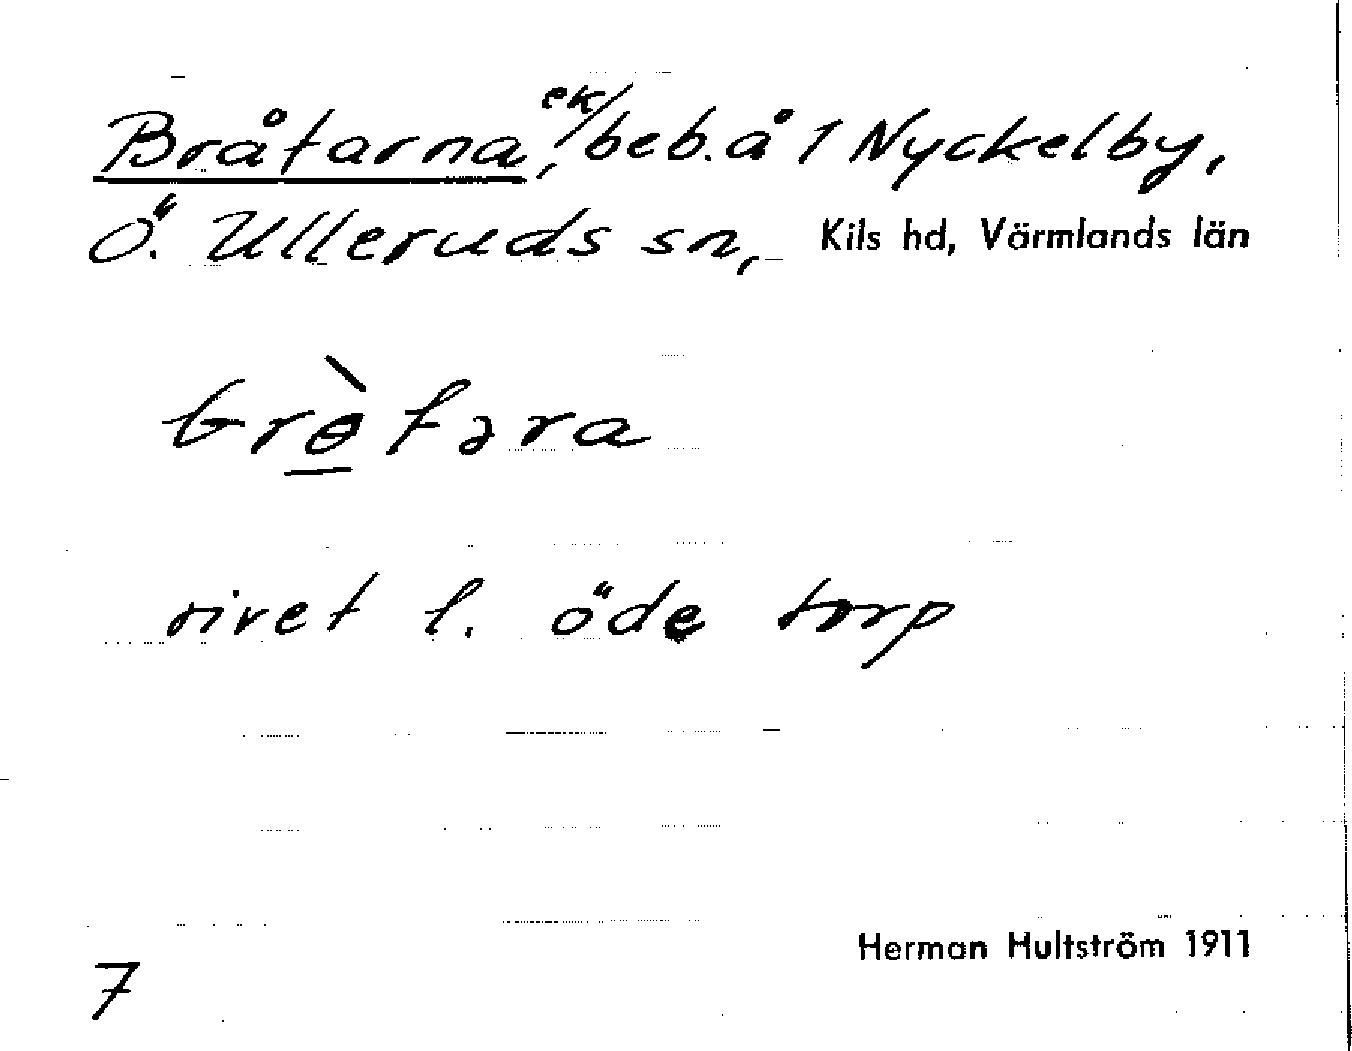 Bråtarna, ek/ beb. å 1 Nyckelby,
Ö. Ulleruds sn, Kils hd, Värmlands län
brɵ̀təra
rivet l. öde torp
Herman Hultström 1911
7